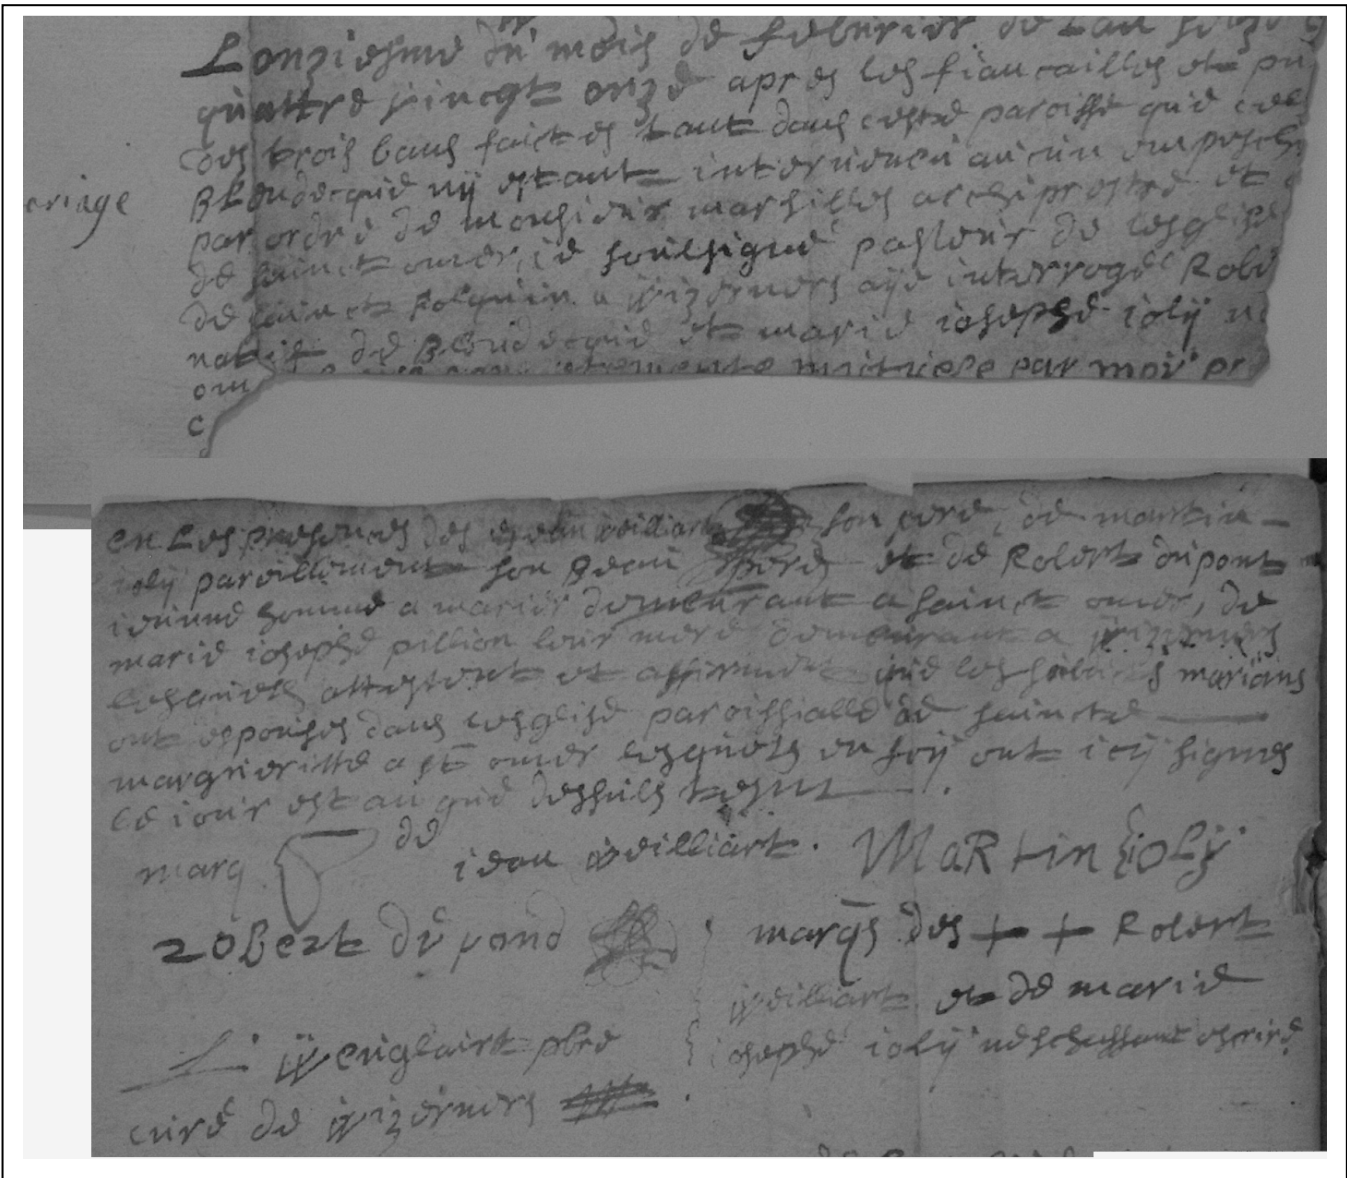 Lonziesme du mois de febvrier de Lan
quattre vincgt onze apres les fiancailles et
des trois bans faictes tant dans cestre paroisse que
Blendecque nÿ estant interveneu aucun
mariage
par ordre de monsieur marsilles archiprestre et
de sainct omer, ie soubsigné pasteur de lesglise
de sainct folquin a wizerners aÿe interrogé
natif de Blendecque et marie iosephe iolÿ
par moÿ
en Les presences des iean weilliart son pere, de martin
iolÿ pareillement son Beau pere et de Robert dupont
ieunne homme a marier demeurant a sainct omer, de
marie iosephe pillion leur mere demeurant a wizerners
lesquels attestent et afferment que les marians
ont espouses dans lesglise paroissialle de saincte
margrieritte a st omer lesquels en foÿ ont icÿ signes
le iour est an que dessus
marq de iean weilliart. MaRtin ioly
RoBert du pond marqs des + + Robert
weilliart et de marie
iosephe iolÿ ne schachant escrire
L: wenglairt pbre
curé de wizerners